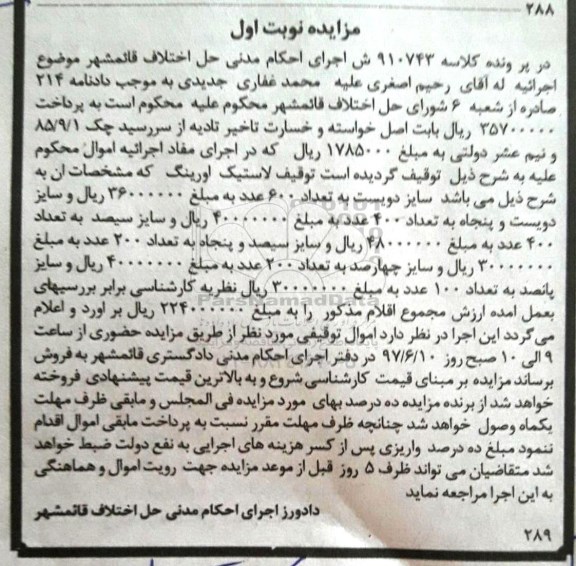 ۲۸۸
مزایده نوبت اول
در پر ونده کلاسه ۹۱۰۷۴۳ ش اجرای احکام مدنی حل اختلاف قائمشهر موضوع
اجرائیه له آقای رحیم اصغری علیه محمد غفاری جدیدی به موجب دادنامه ۲۱۴
صادره از شعبه ۶ شورای حل اختلاف قائمشهر محکوم علیه محکوم است به پرداخت
۳۵۷۰۰۰۰۰ ریال بابت اصل خواسته و خسارت تاخیر تادیه از سررسید چک ۸۵/۹/۱
و نیم عشر دولتی به مبلغ ۱۷۸۵۰۰۰ ریال که در اجرای مفاد اجرائیه اموال محکوم
علیه به شرح ذیل توقیف گردیده است توقیف لاستیک اورینگ که مشخصات ان به
شرح ذیل می باشد سایز دویست به تعداد ۶۰۰ عدد به مبلغ ۳۶۰۰۰۰۰۰ ریال و سایز
دویست و پنجاه به تعداد ۴۰۰ عدد به مبلغ ۴۰۰۰۰۰۰۰ ریال و سایز سیصد به تعداد
۴۰۰ عدد به مبلغ ۴۸۰۰۰۰۰۰ ریال و سایز سیصد و پنجاه به تعداد ۲۰۰ عدد به مبلغ
۳۰۰۰۰۰۰۰ ریال و سایز چهارصد به تعداد ۲۰۰ عدد به مبلغ ۴۰۰۰۰۰۰۰ ریال و سایز
پانصد به تعداد ۱۰۰ عدد به مبلغ ۳۰۰۰۰۰۰۰ ریال نظریه کارشناسی برابر بررسیهای
بعمل امده ارزش مجموع اقلام مذکور را به مبلغ ۲۲۴۰۰۰۰۰۰ ریال بر اورد و اعلام
می گردد این اجرا در نظر دارد اموال توقیفی مورد نظر از طریق مزایده حضوری از ساعت
۹ الی ۱۰ صبح روز ۹۷/۶/۱۰ در دفتر اجرای احکام مدنی دادگستری قائمشهر به فروش
برساند مزایده بر مبنای قیمت کارشناسی شروع و به بالاترین قیمت پیشنهادی فروخته
خواهد شد از برنده مزایده ده درصد بهای مورد مزایده فی المجلس و مابقی ظرف مهلت
یکماه وصول خواهد شد چنانچه ظرف مهلت مقرر نسبت به پرداخت مابقی اموال اقدام
ننمود مبلغ ده درصد واریزی پس از کسر هزینه های اجرایی به نفع دولت ضبط خواهد
شد متقاضیان می تواند ظرف ۵ روز قبل از موعد مزایده جهت رویت اموال و هماهنگی
به این اجرا مراجعه نماید
دادورز اجرای احکام مدنی حل اختلاف قائمشهر
۲۸۹
ParsNamadData